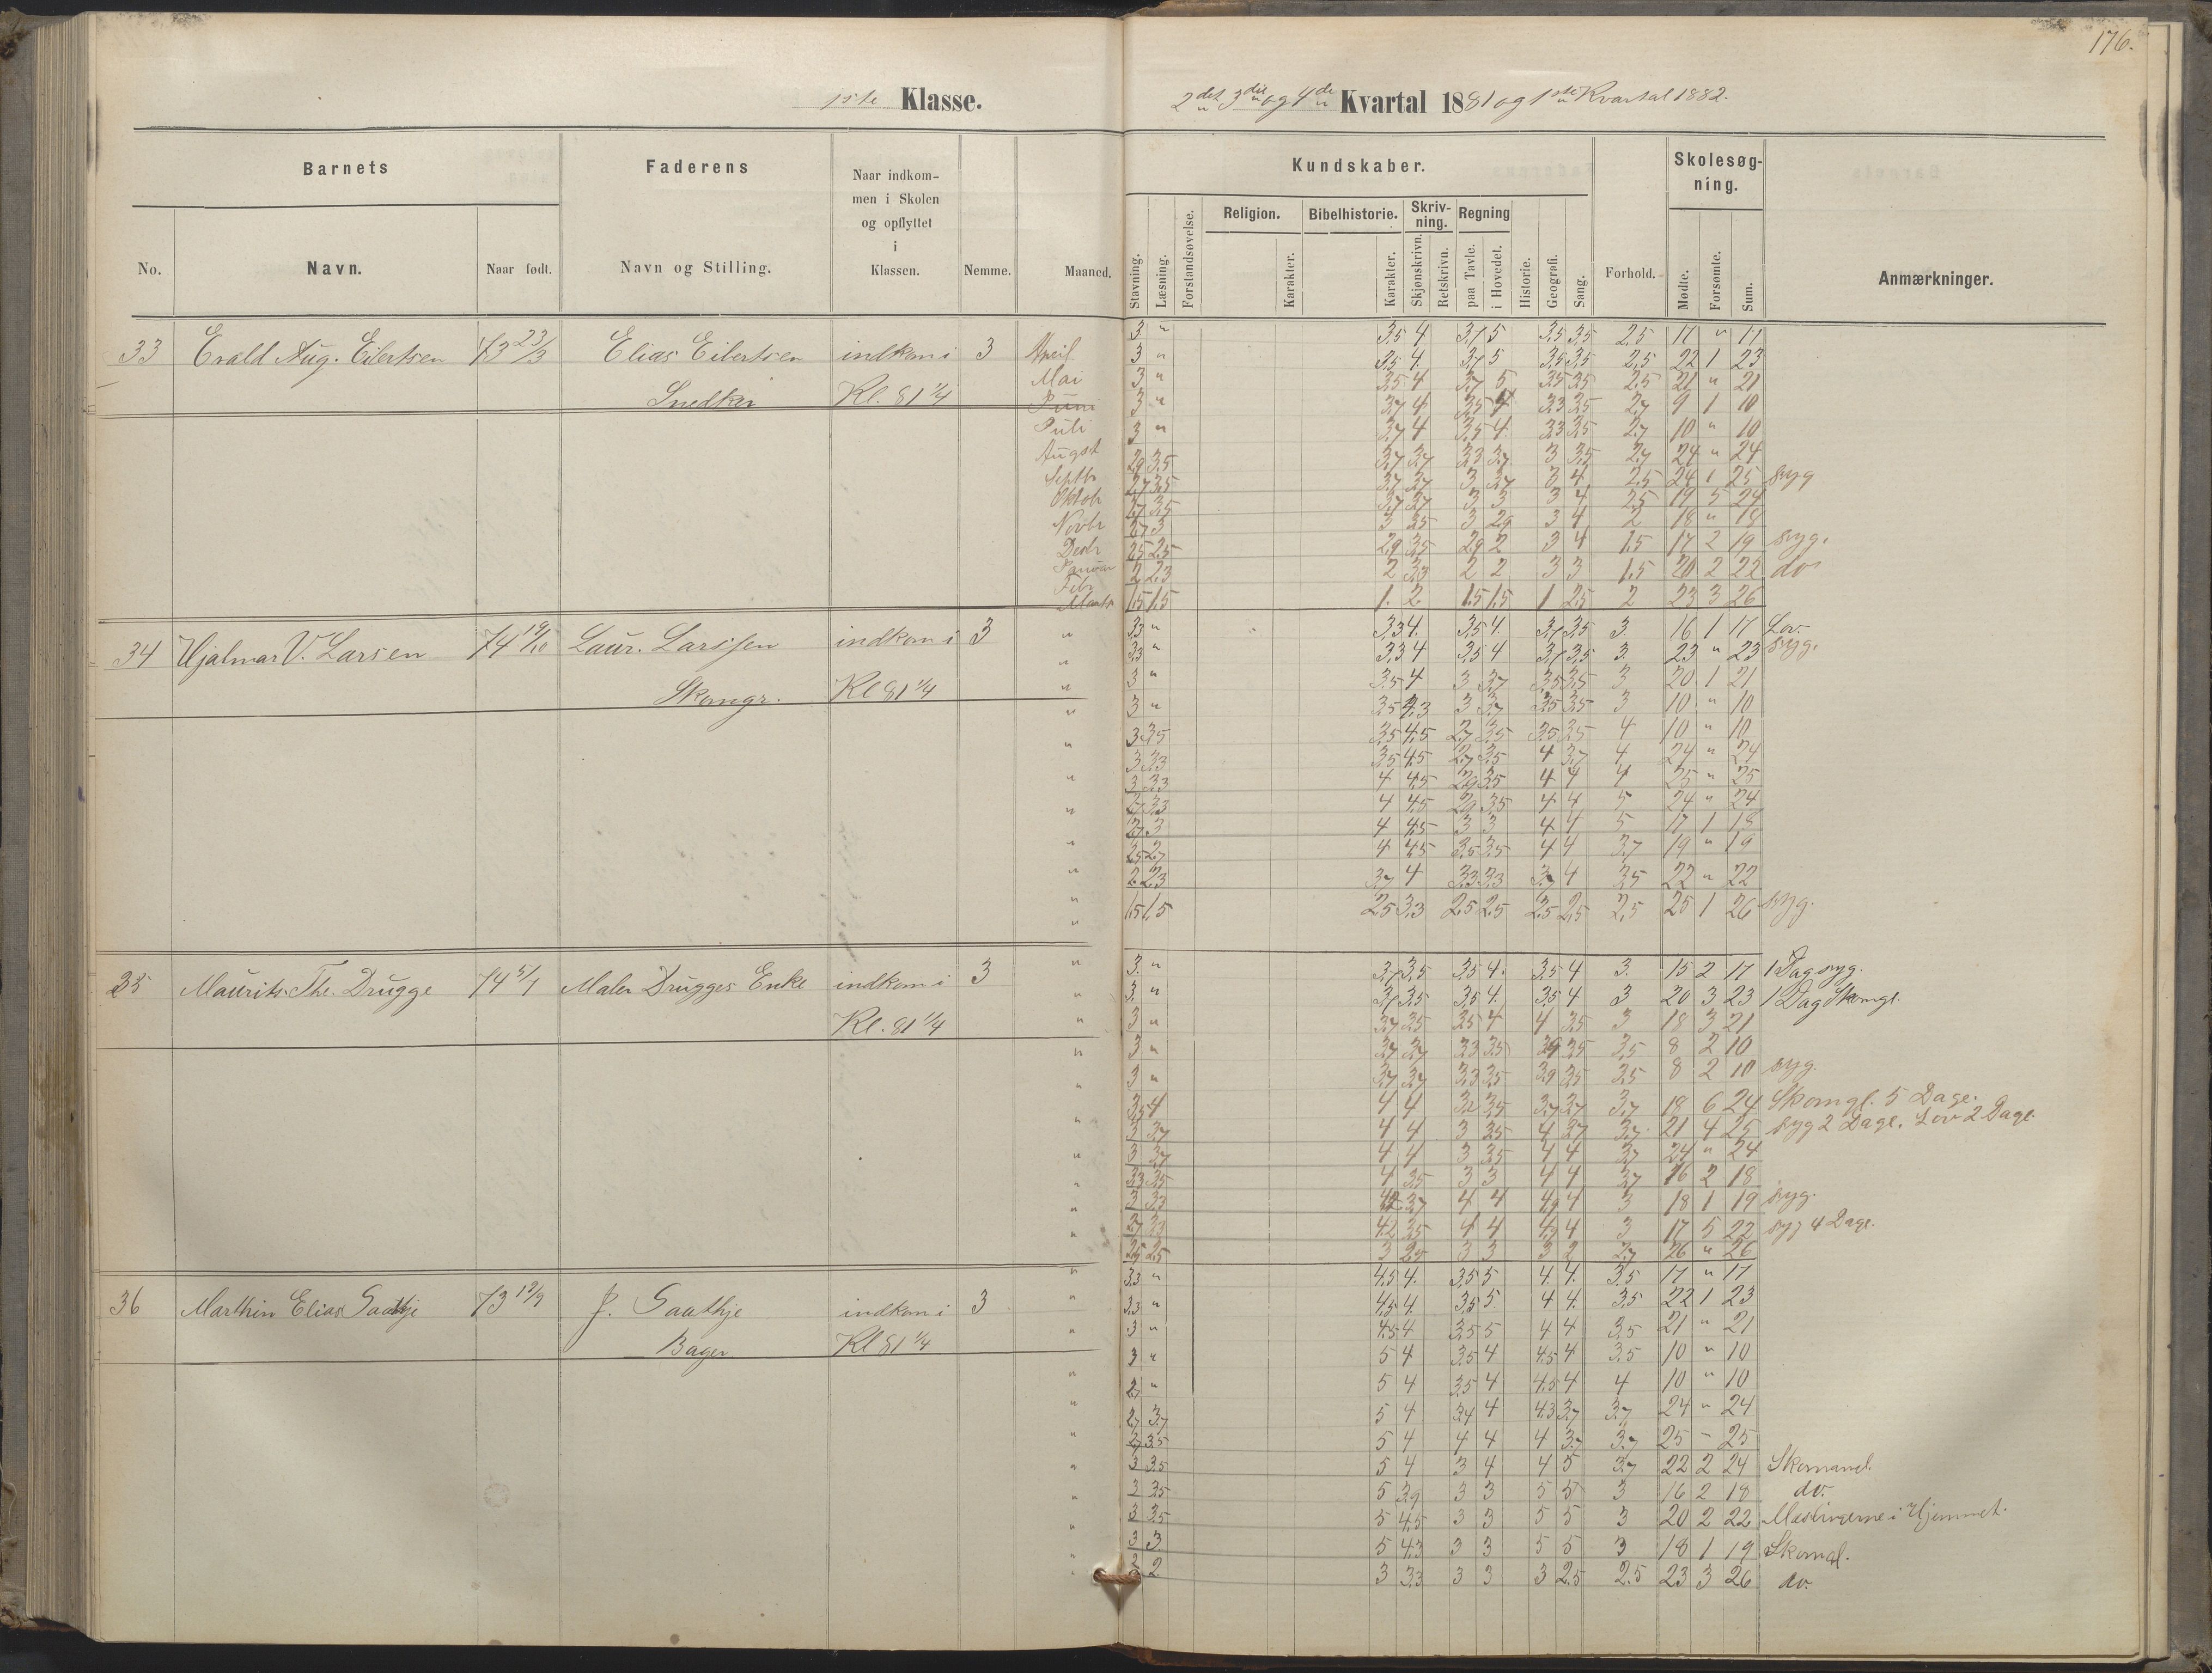 176.
1ste Klasse.
2det 3die og 4de Kvartal 1881 og 1ste Kvartal 1882.
Barnets
Faderens
Naar indkom-
men i Skolen
og opflyttet
i
Klassen.
No.
Navn.
Naar født.
Navn og Stilling.
Nemme.
Maaned.
Kundskaber.
Skolesøg-
ning.
Stavning.
Læsning.
Forstandsøvelse.
Religion.
Karakter.
Bibelhistorie.
Karakter.
Skriv-
ning.
Skjønskrivn.
Retskrivn.
Regning
paa Tavle.
i Hovedet.
Historie.
Geografi.
Sang.
Forhold.
Mødte.
Forsømte.
Sum.
Anmærkninger.
33 Evald Aug. Eilertsen 73 23/3 Elias Eilertsen indkom i 3
Snedker Kl. 81 1/4
April
Mai
Juni
Juli
Augst
Septbr
Oktobr
Novbr
Decbr
Januar
Febr
Marts
3 " 3,5 4 3,7 5 3,5 3,5 2,5 17 " 17
3 " 3,5 4 3,7 5 3,5 3,5 2,5 22 1 23
3 " 3,5 4 3,7 5 3,5 3,5 2,5 21 " 21
3 " 3,7 4 3,5 4 3,3 3,5 2,7 9 1 10
3 " 3,7 4 3,5 4 3,3 3,5 2,7 10 " 10
2,9 3,5 3,7 3,7 3,3 3,7 3 3,5 2,7 24 " 24
2,7 3,5 3,7 3,7 3 3,7 3 4 2,5 24 1 25 syg
2,7 3,5 3,7 3,7 3 3 3 4 2,5 19 5 24
2,7 3 3 3,5 3 2,9 3 4 2 18 " 18
2,5 2,5 2,9 3,5 2,9 2 3 4 1,5 17 2 19 syg.
2 2,3 2 3,3 2 2 3 3 1,5 20 2 22 do
1,5 1,5 1. 2 1,5 1,5 1 2,5 2 23 3 26
34 Hjalmar V. Larsen 74 19/10 Laur. Larssen indkom i 3
Skomgr. Kl 81 1/4
3,3 " 3,3 4. 3,5 4. 3,7 3,5 3. 16 1 17 Lov.
3,3 " 3,3 4 3,5 4 3,7 3,5 3. 23 " 23 syg.
3 " 3,5 4 3 3,7 3,5 3,5 3 20 1 21
3 " 3,5 4,3 3 3,7 3,5 3,5 3 10 " 10
3 3,5 3,5 4,5 2,7 3,5 3,5 3,5 4 10 " 10
3 3,3 3,5 4,5 2,7 3,5 4 3,7 4 24 " 24
3 3,3 4 4,5 2,9 3,5 4 4 4 25 " 25
2,7 3,3 4 4,5 2,9 3,5 4 4 5 24 " 24
2,7 3 4 4,5 3 3 4 4 5 17 1 18
2,5 2,7 4 4,5 3,5 3,5 4 4 3,7 19 " 19
2 2,3 3,7 4 3,3 3,3 3,7 4 3,5 22 " 22
1,5 1,5 2,5 3,3 2,5 2,5 2,5 2,5 2,5 25 1 26 syg.
35 Maurits Th. Drugge 74 5/7 Maler Drugges Enke indkom i 3
Kl. 81 1/4
3. " 3,7 3,5 3,5 4. 3,5 4 3. 15 2 17 1 Dag syg.
3. " 3,7 3,5 3,5 4. 3,5 4 3 20 3 23 1 Dag Skomgl.
3 " 3,7 3,5 3,5 4 4 3,5 3 18 3 21
3 " 3,7 3,7 3,3 3,5 3,9 3,5 3,5 8 2 10
3 " 3,7 3,7 3,3 3,5 3,9 3,5 3,5 8 2 10 syg.
3,5 4 4 4 3,2 3,5 3,7 3,7 3,7 18 6 24 Skomgl. 5 Dage.
3 3,7 4 4 3 3,5 4 3,7 3,7 21 4 25 syg 2 Dage. Lov 2 Dage
3 3,7 4 4 3 3,5 4 4 3,7 24 " 24
3,3 3,5 4 3,5 3 3 4 4 3,7 16 2 18
3 3,3 4,2 3,7 4 4 4,9 4 3 18 1 19 syg.
2,7 3,3 4,2 3,5 4 4 4,9 4 3 17 5 22 syg 4 Dage.
2,5 2,5 3 2,5 3 3 3 2 2,7 26 " 26
36 Marthin Elias Saathje 73 19/9 J. Saathje indkom i 3
Bager Kl 81 1/4
3,3 " 4,5 4. 3,5 5 4. 4. 3,5 17 " 17
3,3 " 4,5 4. 3,5 5. 4 4. 3,5 22 1 23
3 " 4,5 4 3,5 5 4 4 3,5 21 " 21
3 " 5 4 3,5 4 4,5 4 3,5 10 " 10
2,7 " 5 4 3,5 4 4,5 4 4 10 " 10
2,7 3,7 5 4 3,4 4 4,3 3,7 3,7 24 " 24
2,7 3,5 5 4 4 4 4 3,7 3,7 25 - 25
3 3,5 5 4 3 4 4 5 3,7 22 2 24 Skomangl.
3 3,5 5 3,9 3 3 5 5 3 16 2 18 do.
3 3,5 5 4,5 3 3 5 5 3 20 2 22 Mæslingerne i Hjemmet.
3 3 5 4,3 3 3 5 5 3 18 1 19 Skomgl.
2 2 3 3,3 3 3 3 2,5 2,5 23 3 26 do.